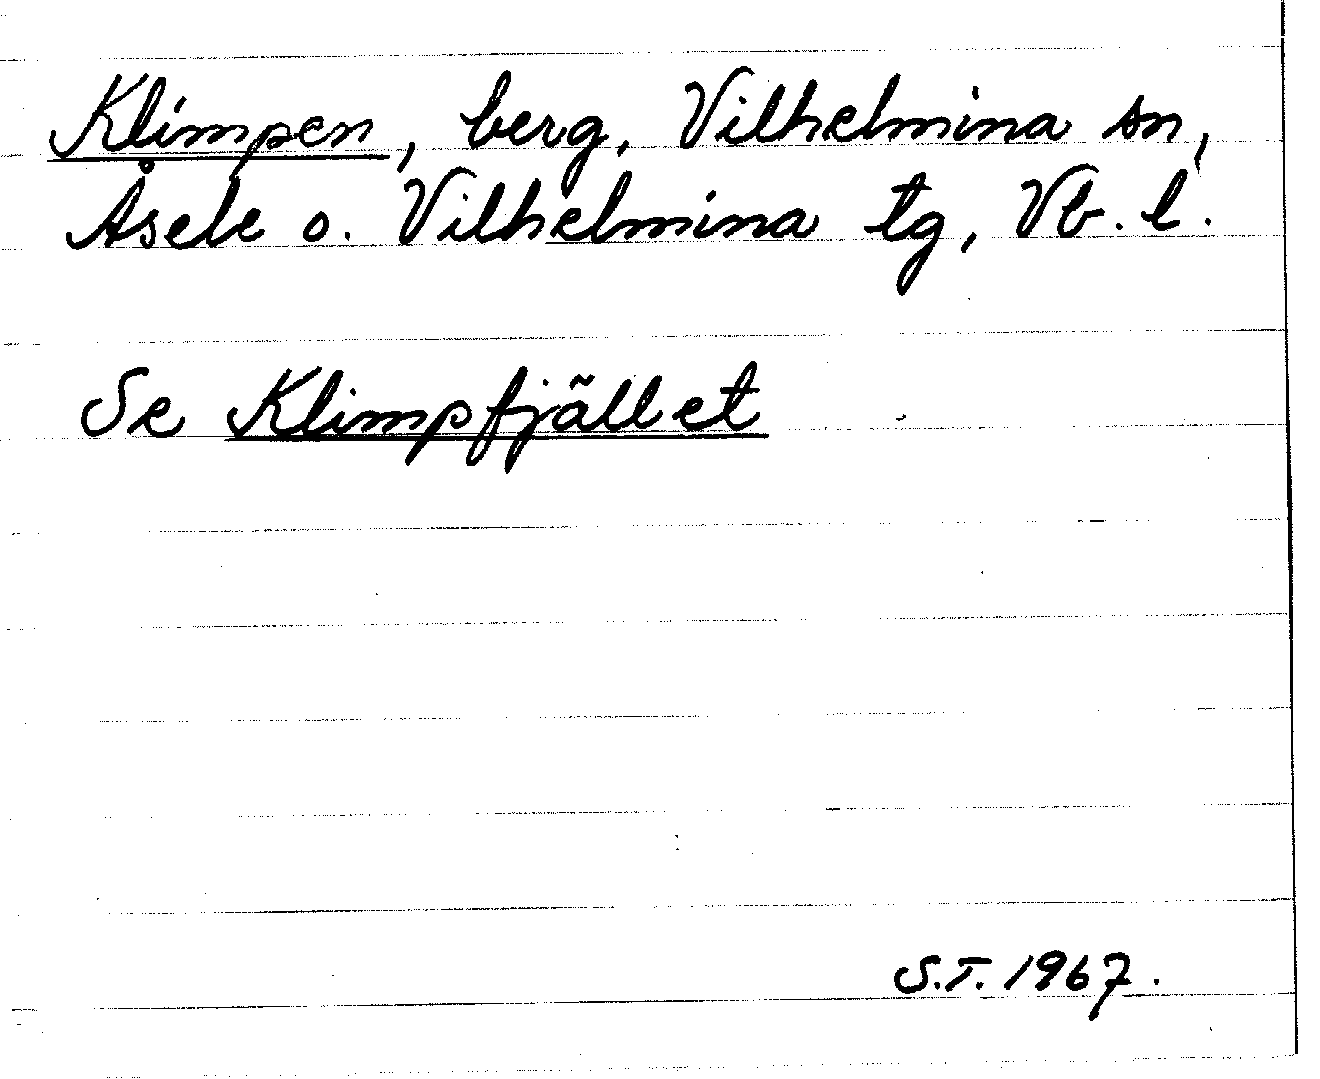 Klimpen, berg, Vilhelmina sn,
Åsele o. Vilhelmina tg, Vb. l.
Se Klimpfjället
S.T. 1967.